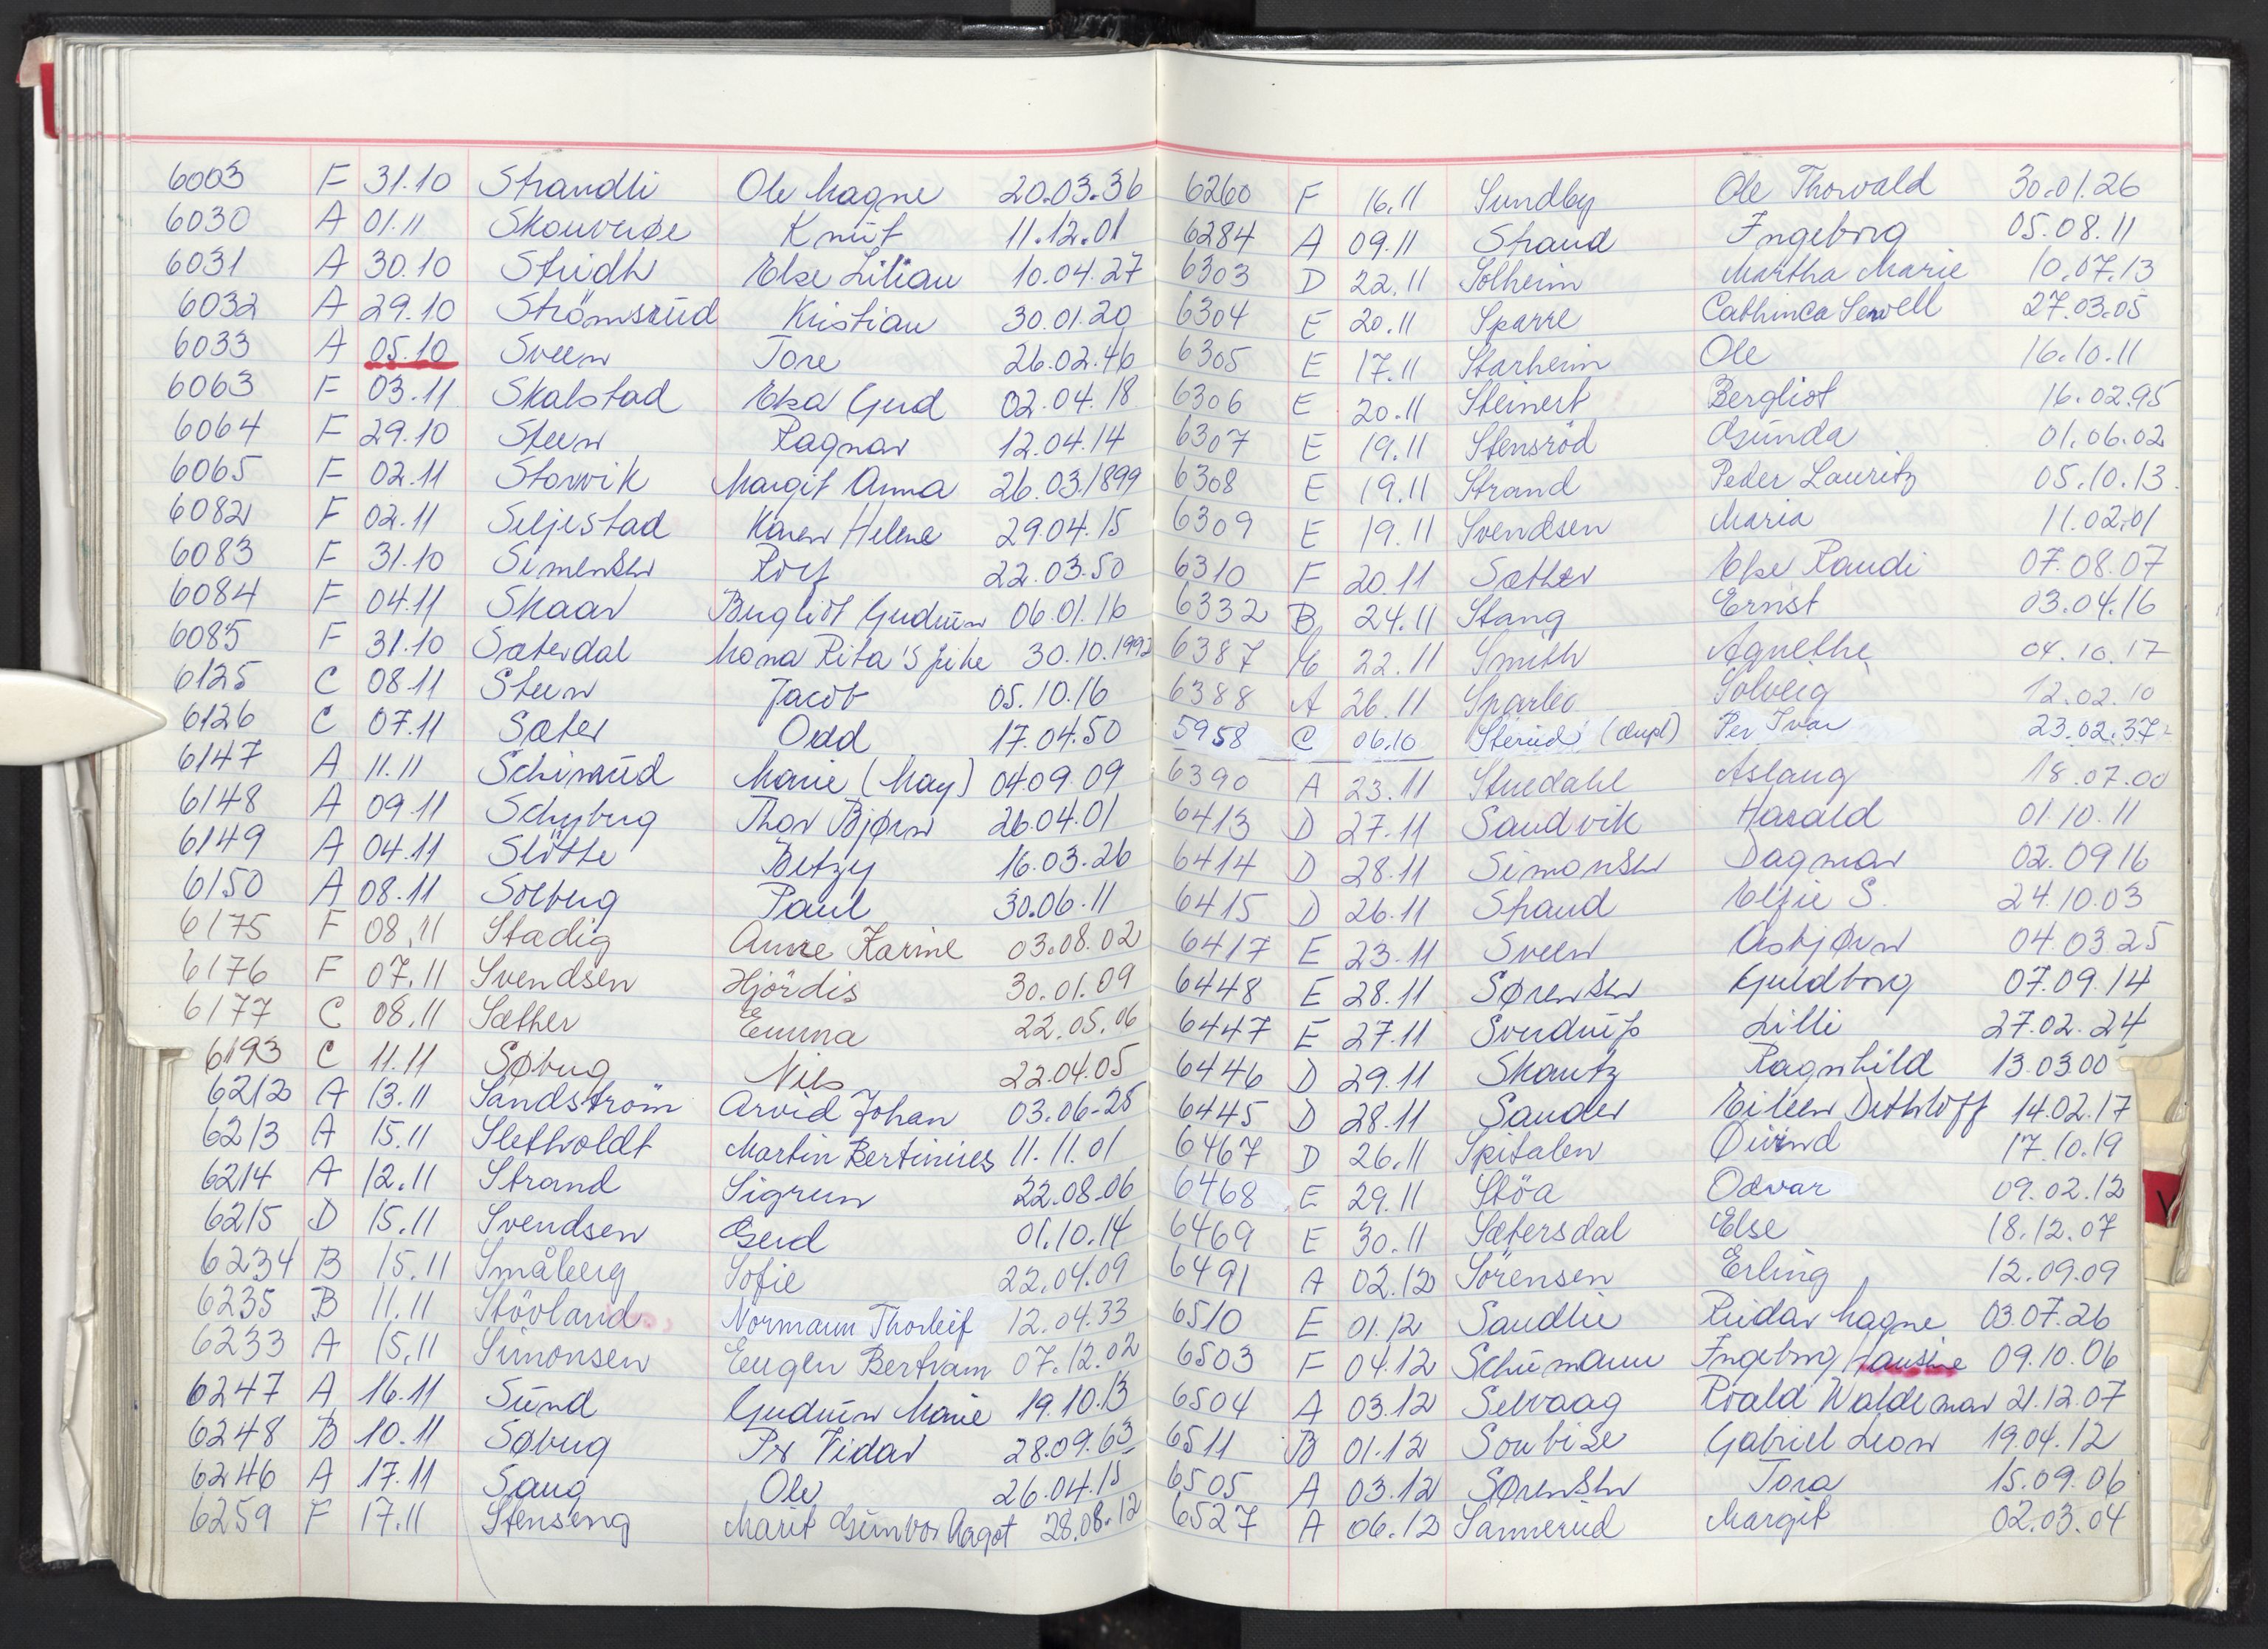 6003 F 31.10 Strandli Ole Magne 20.03.36
6030 A 01.11 Skouverøe Knut 11.12.01
6031 A 30.10 Stridh Else Lilian 10.04.27
6032 A 29.10 Strömsrud Kristian 30.01.20
6033 A 05.10 Sveen Tore 26.02.46
6063 F 03.11 Skalstad Elsa Gerd 02.04.18
6064 F 29.10 Steen Ragnar 12.04.14
6065 F 02.11 Storvik Margit Anna 26.03.1899
6082 F 02.11 Seljestad Karen Helene 29.04.15
6083 F 31.10 Simensen Rolf 22.03.50
6084 F 04.11 Skaar Bergliot Gudrun 06.01.16
6085 F 31.10 Sæterdal Mona Rita's pike 30.10.1992
6125 C 08.11 Steen Jacob 05.10.16
6126 C 07.11 Sæter Odd 17.04.50
6147 A 11.11 Schirmud Marie (May) 04.09.09
6148 A 09.11 Schyberg Thor Bjørn 26.04.01
6149 A 04.11 Slötte Betzy 16.03.26
6150 A 08.11 Solberg Paul 30.06.11
6175 F 08.11 Stadig Anne Karine 03.08.02
6176 F 07.11 Svendsen Hjördis 30.01.09
6177 C 08.11 Sæther Emma 22.05.06
6193 C 11.11 Søberg Nils 22.04.05
6212 A 13.11 Sandström Arvid Johan 03.06-25
6213 A 15.11 Slethvoldt Martin Bertinius 11.11.01
6214 A 12.11 Strand Sigrun 22.08.06
6215 D 15.11 Svendsen Gerd 01.10.14
6234 B 15.11 Småberg Sofie 22.04.09
6235 B 11.11 Stövland Normann Thorleif 12.04.33
6233 A 15.11 Simonsen Eugen Bertram 07.12.02
6247 A 16.11 Sund Gudrun Marie 19.10.13
6248 B 10.11 Søberg Per Vidar 28.09.63
6246 A 17.11 Saug Ole 26.04.15
6259 F 17.11 Stenseng Marit Gunvor Aagot 28.08.12
6260 F 16.11 Sundby Ole Thorvald 30.01.26
6284 A 09.11 Strand Ingeborg 05.08.11
6303 D 22.11 Solheim Martha Marie 10.07.13
6304 E 20.11 Sparre Cathinca Sewell 27.03.05
6305 E 17.11 Starheim Ole 16.10.11
6306 E 20.11 Steinert Bergliot 16.02.95
6307 E 19.11 Stensröd Gunda 01.06.02
6308 E 19.11 Strand Peder Lauritz 05.10.13.
6309 E 19.11 Svendsen Maria 11.02.01
6310 F 20.11 Sæther Else Randi 07.08.07
6332 B 24.11 Stang Ernst 03.04.16
6387 22.11 Smith Agnethe 04.10.17
6388 A 26.11 Sparbo Solveig 12.02.10
5958 C 06.10 Sterud (dupl) Per Ivar 23.02.37
6390 A 23.11 Stuedahl Aslaug 18.07.00
6413 D 27.11 Sandvik Harald 01.10.11
6414 D 28.11 Simonsen Dagmar 02.0916
6415 D 26.11 Strand Elfie S. 24.10.03
6417 E 23.11 Sveen Asbjørn 04.03.25
6448 E 28.11 Sørensen Guldborg 07.09.14
6447 E 27.11 Sverdrup Lilli 27.02.24
6446 D 29.11 Skautz Ragnhild 13.03.00
6445 D 28.11 Sander Eileen Dethloff 14.02.17
6467 D 26.11 Spitalen Øivind 17.10.19
6468 E 29.11 Stöa Odvar 09.02.12
6469 E 30.11 Sætersdal Else 18.12.07
6491 A 02.12 Sörensen Erling 12.09.09
6510 E 01.12 Sandlie Reidar Magne 03.07.26
6503 F 04.12 Schumann Ingeborg Hansine 09.10.06
6504 A 03.12 Selvaag Roald Waldemar 21.12.07
6511 B 01.12 Soubise Gabriel Leon 19.04.12
6505 A 03.12 Sørensen Tora 15.09.06
6527 A 06.12 Sannerud Margit 02.03.04